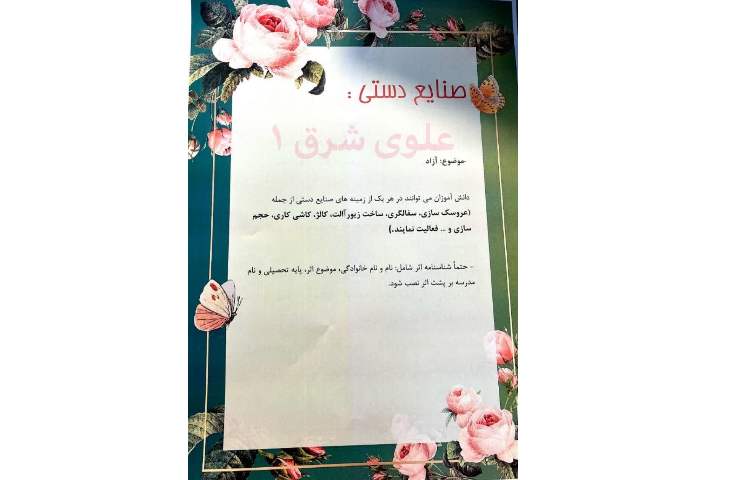 صنایع دستی :
علوی شرق ۱
-موضوع: آزاد
دانش آموزان می توانند در هر یک از زمینه های صنایع دستی از جمله
(عروسک سازی، سفالگری، ساخت زیورآالت، کالژ، کاشی کاری، حجم
سازی و ... فعالیت نمایند.)
- حتماً شناسنامه اثر شامل: نام و نام خانوادگی، موضوع اثر، پایه تحصیلی و نام
مدرسه بر پشت اثر نصب شود.